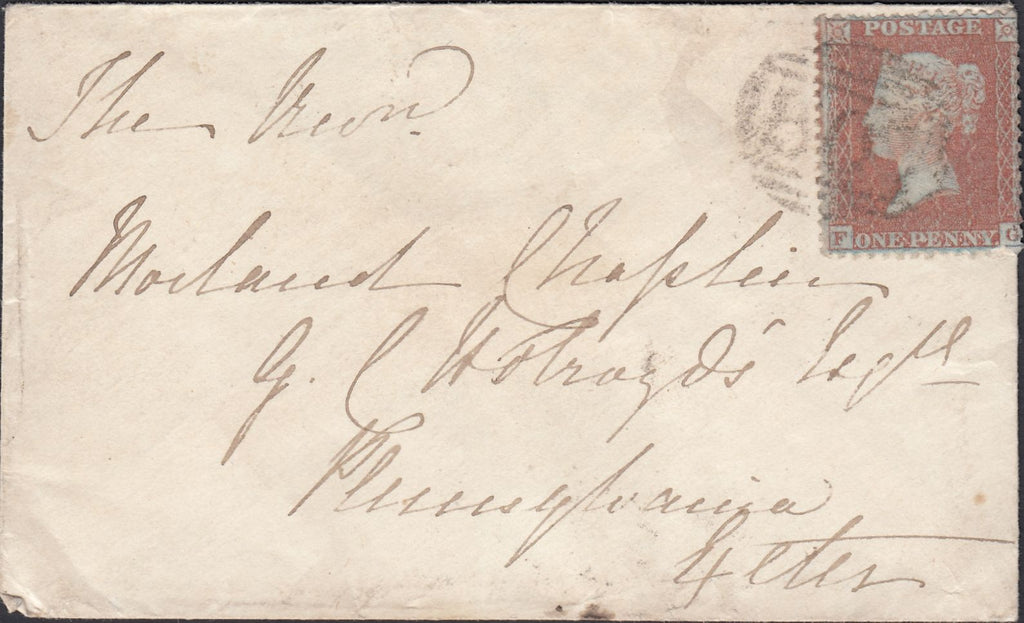 POSTAGE
F ONE PENNY G
The Revd.
Morland Chaplin
G. C Holroyd's Esqre
Pennsylvania
Exeter